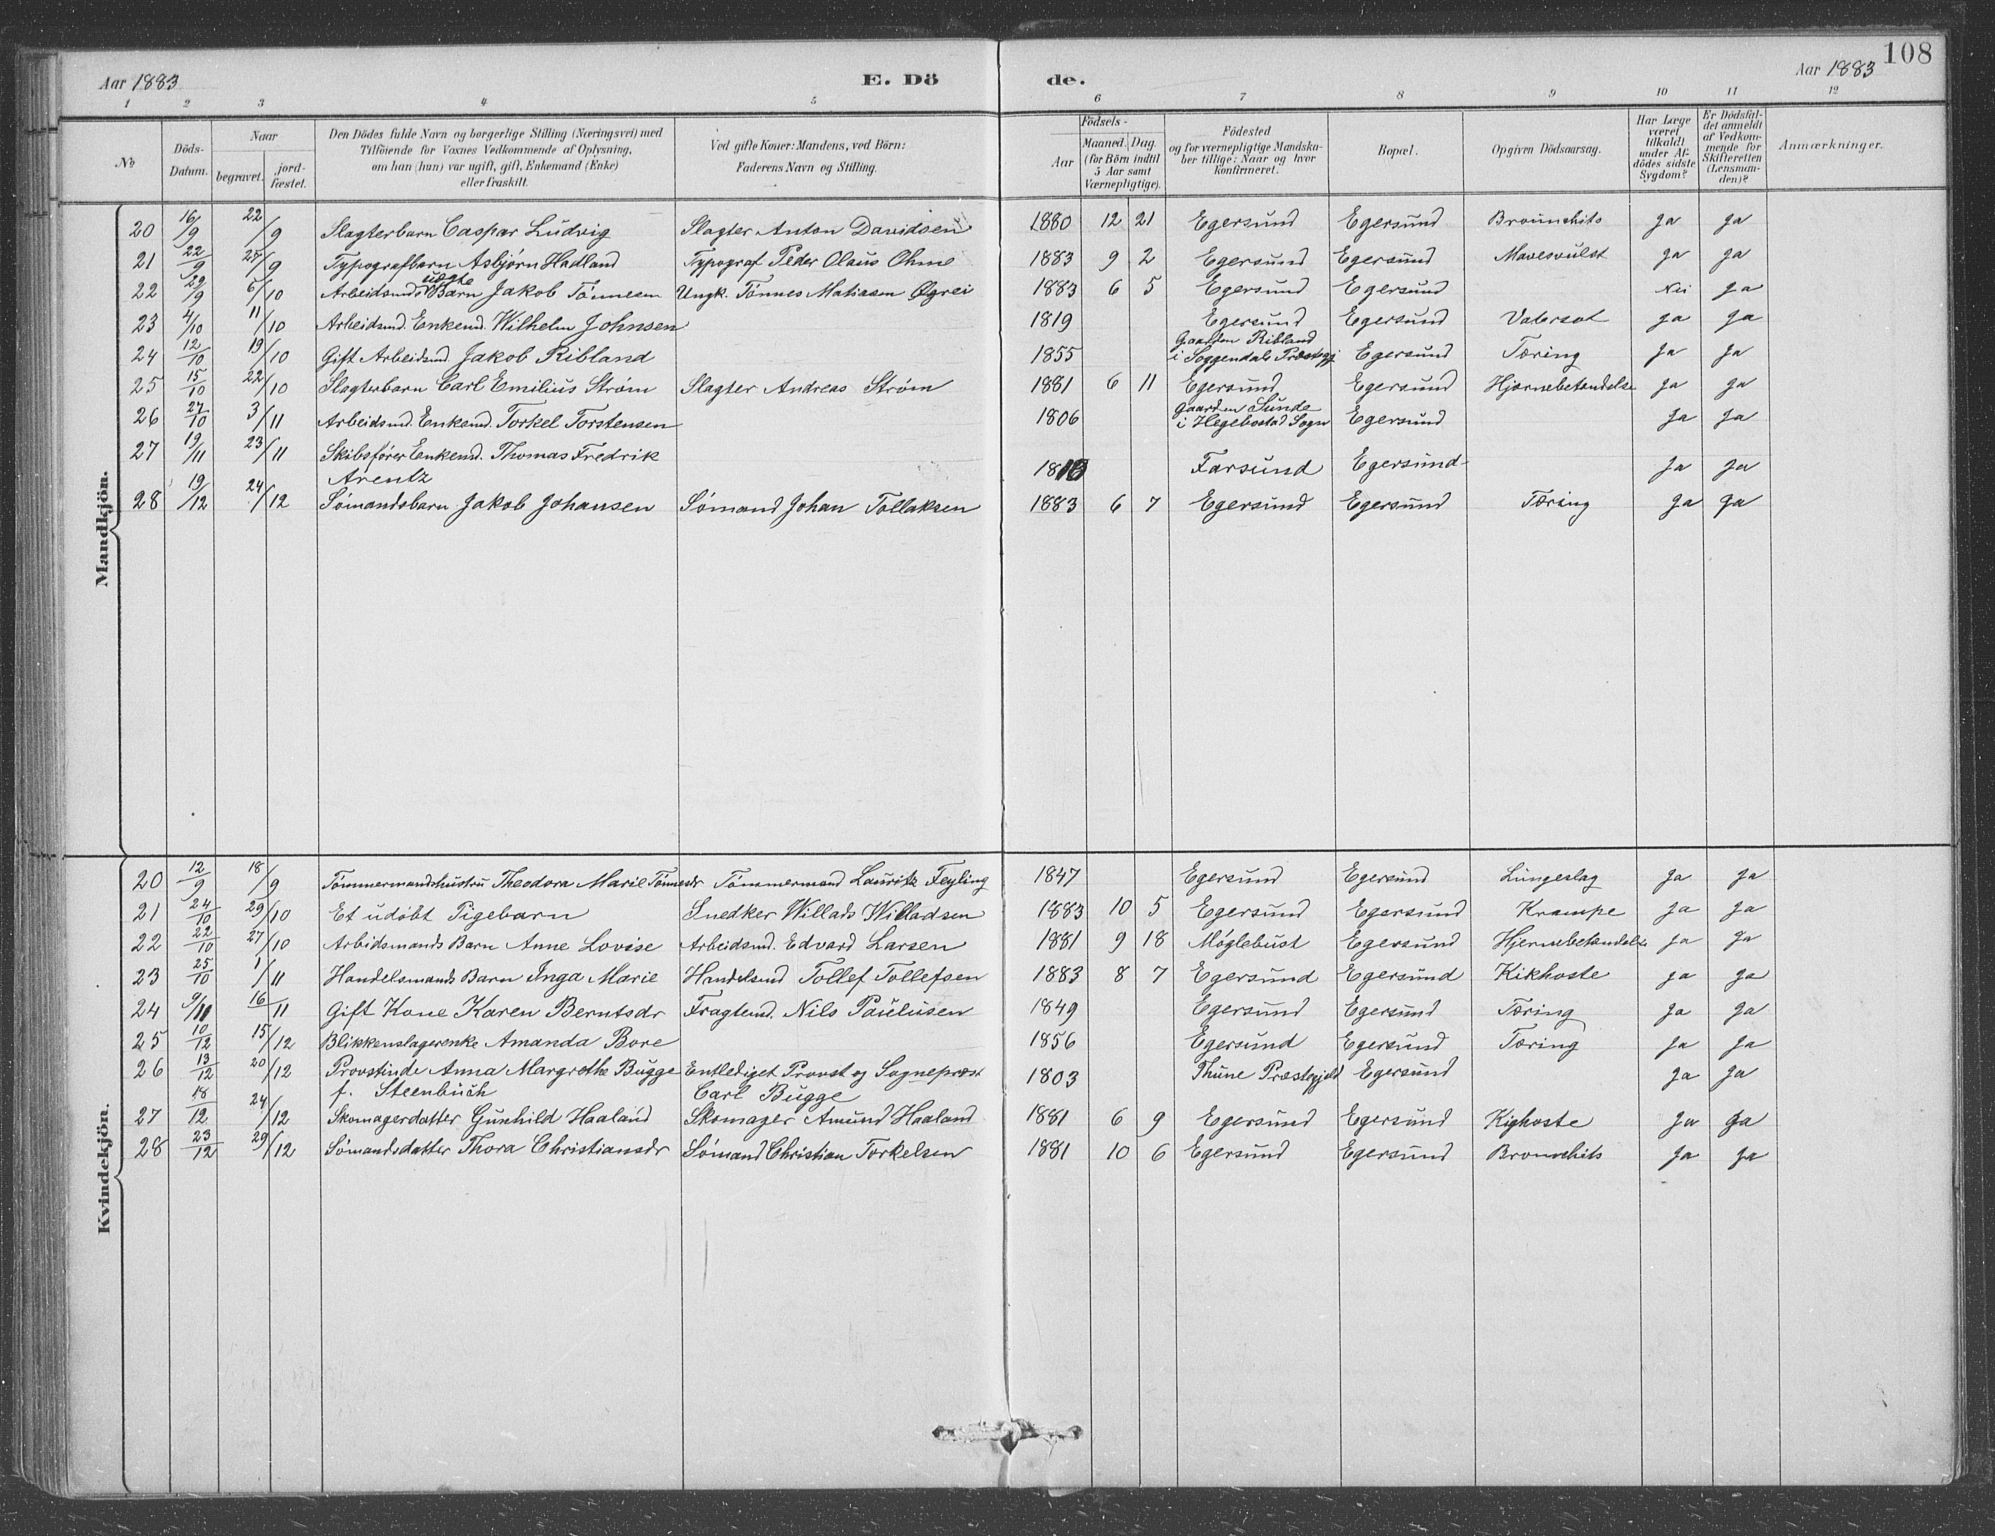 108
Aar 1883 E. Dö de. Aar 1883
1 2 3 4 5 6 7 8 9 10 11 12
No
Döds-Datum.
Naar begravet. jordfæstet.
Den Dödes fulde Navn og borgerlige Stilling (Næringsvei) med Tilföiende for Voxnes Vedkommende af Oplysning, om han (hun) var ugift, gift, Enkemand (Enke) eller fraskilt.
Ved gifte Koner: Mandens, ved Börn: Faderens Navn og Stilling.
Födsels- Aar Maaned. Dag. (for Börn indtil 5 Aar samt Værnepligtige).
Födested og for værnepligtige Mandskaber tillige: Naar og hvor konfirmeret.
Bopæl.
Opgiven Dödsaarsag.
Har Læge været tilkaldt under Afdödes sidste Sygdom?
Er Dödsfaldet anmeldt af Vedkommende for Skifteretten (Lensmanden)?
Anmærkninger.
Mandkjön.
20 16/9 22/9 Slagterbarn Caspar Ludvig Slagter Anton Davidsen 1880 12 21 Egersund Egersund Bronnchits Ja Ja
21 22/9 25/9 Typografbarn Asbjørn Hadland Typograf Peder Olaus Ohme 1883 9 2 Egersund Egersund Mavesvulst Ja Ja
uægte
22 29/9 6/10 Arbeidsmds Barn Jakob Tønnesen Ungk. Tønnes Matiasen Øgrei 1883 6 5 Egersund Egersund Nei Ja
23 4/10 11/10 Arbeidsmd. Enkemd. Wilhelm Johnsen 1819 Egersund Egersund Vatersot Ja Ja
24 12/10 19/10 Gift Arbeidsmd Jakob Ribland 1855 Gaarden Ribland i Soggendals Præstegj Egersund Tæring Ja Ja
25 15/10 22/10 Slagterbarn Carl Emilius Strøm Slagter Andreas Strøm 1881 6 11 Egersund Egersund Hjernebetendelse Ja Ja
26 27/10 3/11 Arbeidsmd. Enkemd. Torkel Torstensen 1806 Gaarden Sunde i Hegebostad Sogn Egersund Ja Ja
27 19/11 23/11 Skibsfører Enkemd. Thomas Fredrik
Arentz 1810 Farsund Egersund Ja Ja
28 19/12 24/12 Sømandsbarn Jakob Johansen Sømand Johan Tollaksen 1883 6 7 Egersund Egersund Tæring Ja Ja
Kvindekjön.
20 12/9 18/9 Tømmermandshustru Theodora Marie Tønnesdr Tømmermand Lauritz Feyling 1847 Egersund Egersund Lungeslag Ja Ja
21 24/10 29/10 Et udøbt Pigebarn Snedker Willads Willadsen 1883 10 5 Egersund Egersund Krampe Ja Ja
22 22/10 27/10 Arbidsmands Barn Anne Lovise Arbeidsmd. Edvard Larsen 1881 9 18 Møglebust Egersund Hjernebetendelse Ja Ja
23 25/10 1/11 Handelsmands Barn Inga Marie Handelsmd Tollef Tollefsen 1883 8 7 Egersund Egersund Kikhoste Ja Ja
24 9/11 16/11 Gift Kone Karen Berntsdr Fragtemd. Nils Paulusen 1849 Egersund Egersund Tæring Ja Ja
25 10/12 15/12 Blikkenslagerenke Amanda Bore 1856 Egersund Egersund Tæring Ja Ja
26 13/12 20/12 Provstinde Anna Margrethe Bugge Entlediget Provst og Sogneprest 1803 Thune Præstegjeld Egersund Ja Ja
f. Steenbuch Carl Bugge
27 18/12 24/12 Skomagerdatter Gunhild Haaland Skomager Amund Haaland 1881 6 9 Egersund Egersund Kighoste Ja Ja
28 23/12 29/12 Sømandsdatter Thora Christiansdr Sømand Christian Torkelsen 1881 10 6 Egersund Egersund Bronnchits Ja Ja